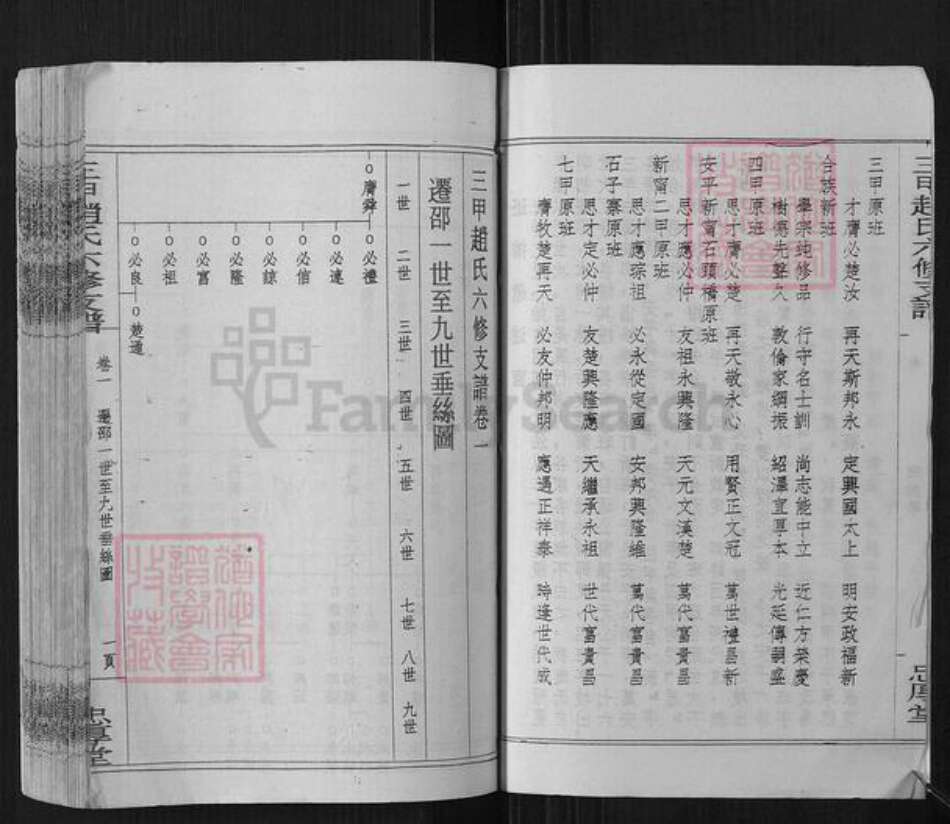 三甲趙氏六修支譜
忠厚堂
三甲原班
才膺必楚汝 再天斯邦永 定興國太上 明安政福新
合族新班
畢宗純修品 行守名士訓 尚志能中立 近仁方榮慶
樹德先整久 敦倫家綱振 紹澤宜厚本 光延傳嗣盛
四甲原班
思才膺必楚 再天敬永心 用賢正文冠 萬世禮昌新
安平新甯石頭橋原班
思才應必仲 友祖永興隆 天元文漢楚 萬代富貴昌
新甯二甲原班
思才應琮祖 必永從定國 安邦興隆維 萬代富貴昌
石子寨原班
思才定必仲 友楚興隆應 天繼承永祖 世代富貴昌
七甲原班
膺牧楚再天 必友仲邦明 應遇正祥泰 時逢世代成
三甲趙氏六修支譜卷一
遷邵一世至九世垂絲圖
一世 二世 三世 四世 五世 六世 七世 八世 九世
膺舜 必禮
必達
必信
必諒
必隆
必富
必祖
必良 楚通
三甲趙氏六修支譜 卷一 遷邵一世至九世垂絲圖 一頁 忠厚堂
譜學會
收藏
FamilySearch